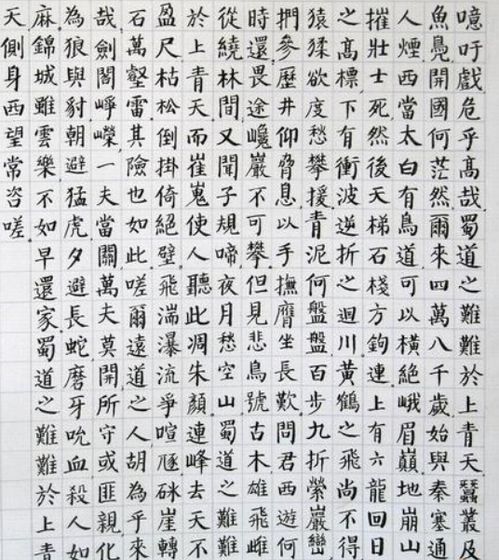 噫吁戲危乎高哉蜀道之難難於上青天蠶叢及
魚鳧開國何茫然爾來四萬八千歲始與秦塞通
人煙西當太白有鳥道可以橫絕峨眉巔地崩山
摧壯士死然後天梯石棧方鉤連上有六龍回日
之高標下有衝波逆折之迴川黃鶴之飛尚不得
猿猱欲度愁攀援青泥何盤盤百步九折縈巖巒
捫參歷井仰脅息以手撫膺坐長歎問君西遊何
時還畏途巉巖不可攀但見悲鳥號古木雄飛雌
從繞林間又聞子規啼夜月愁空山蜀道之難難
於上青天而崔嵬使人聽此凋朱顏連峰去天不
盈尺枯松倒掛倚絕壁飛湍瀑流爭喧豗砯崖轉
石萬壑雷其險也如此嗟爾遠道之人胡為乎來
哉劍閣崢嶸一夫當關萬夫莫開所守或匪親化
為狼與豺朝避猛虎夕避長蛇磨牙吮血殺人如
麻錦城雖雲樂不如早還家蜀道之難難於上青
天側身西望常咨嗟